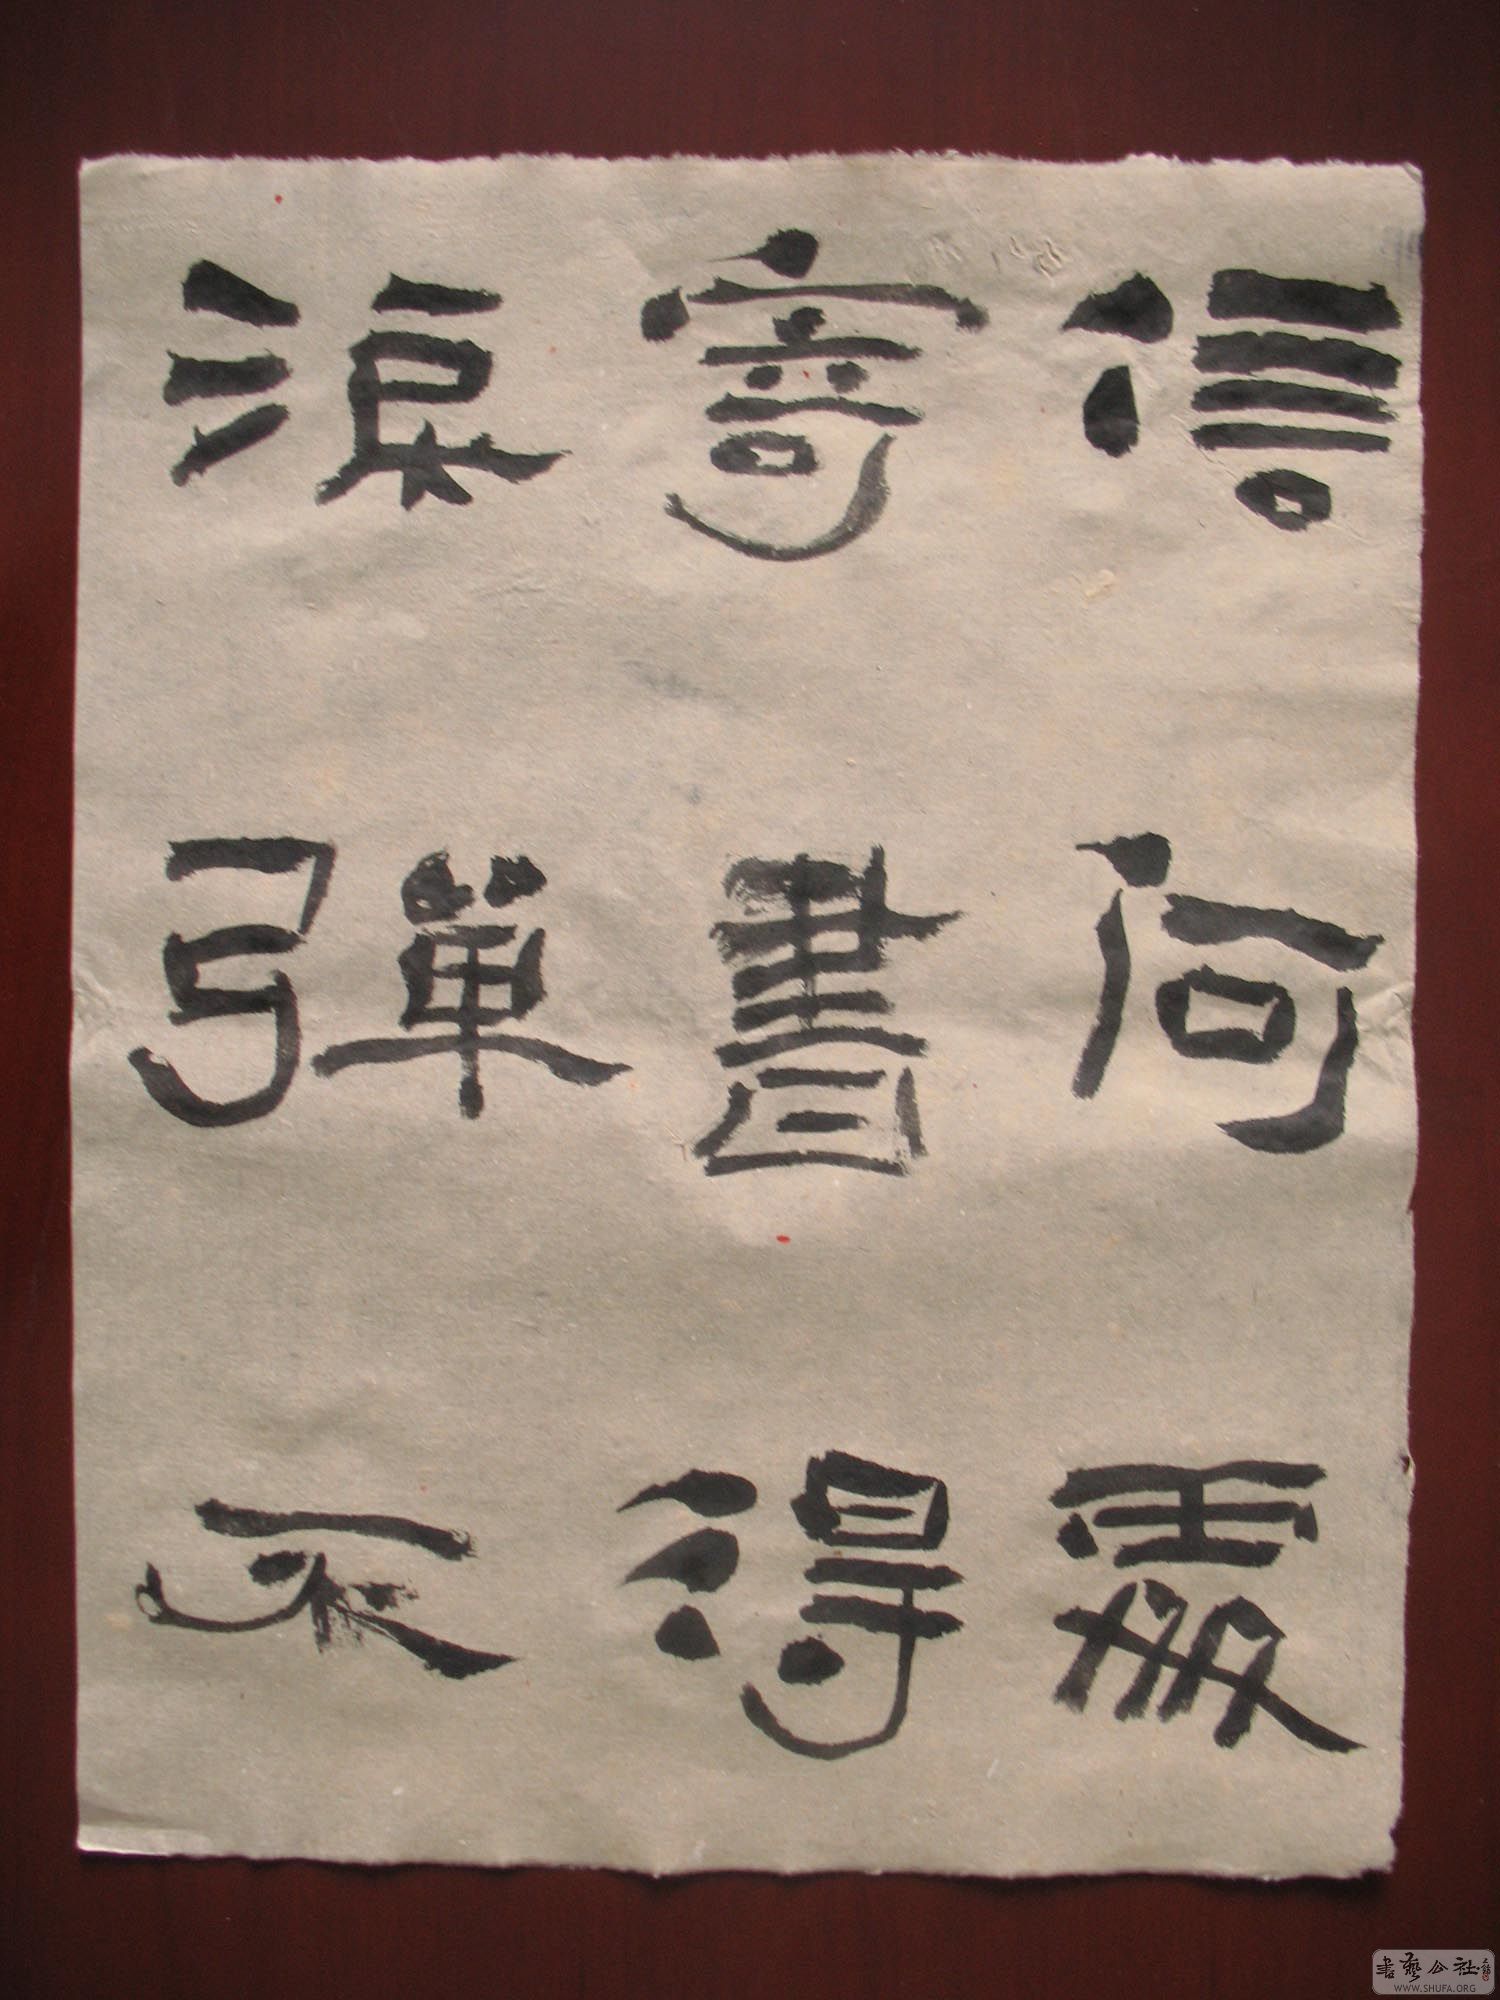 信何處
寄書得
淚彈不
書藝公社
WWW.SHUFA.ORG